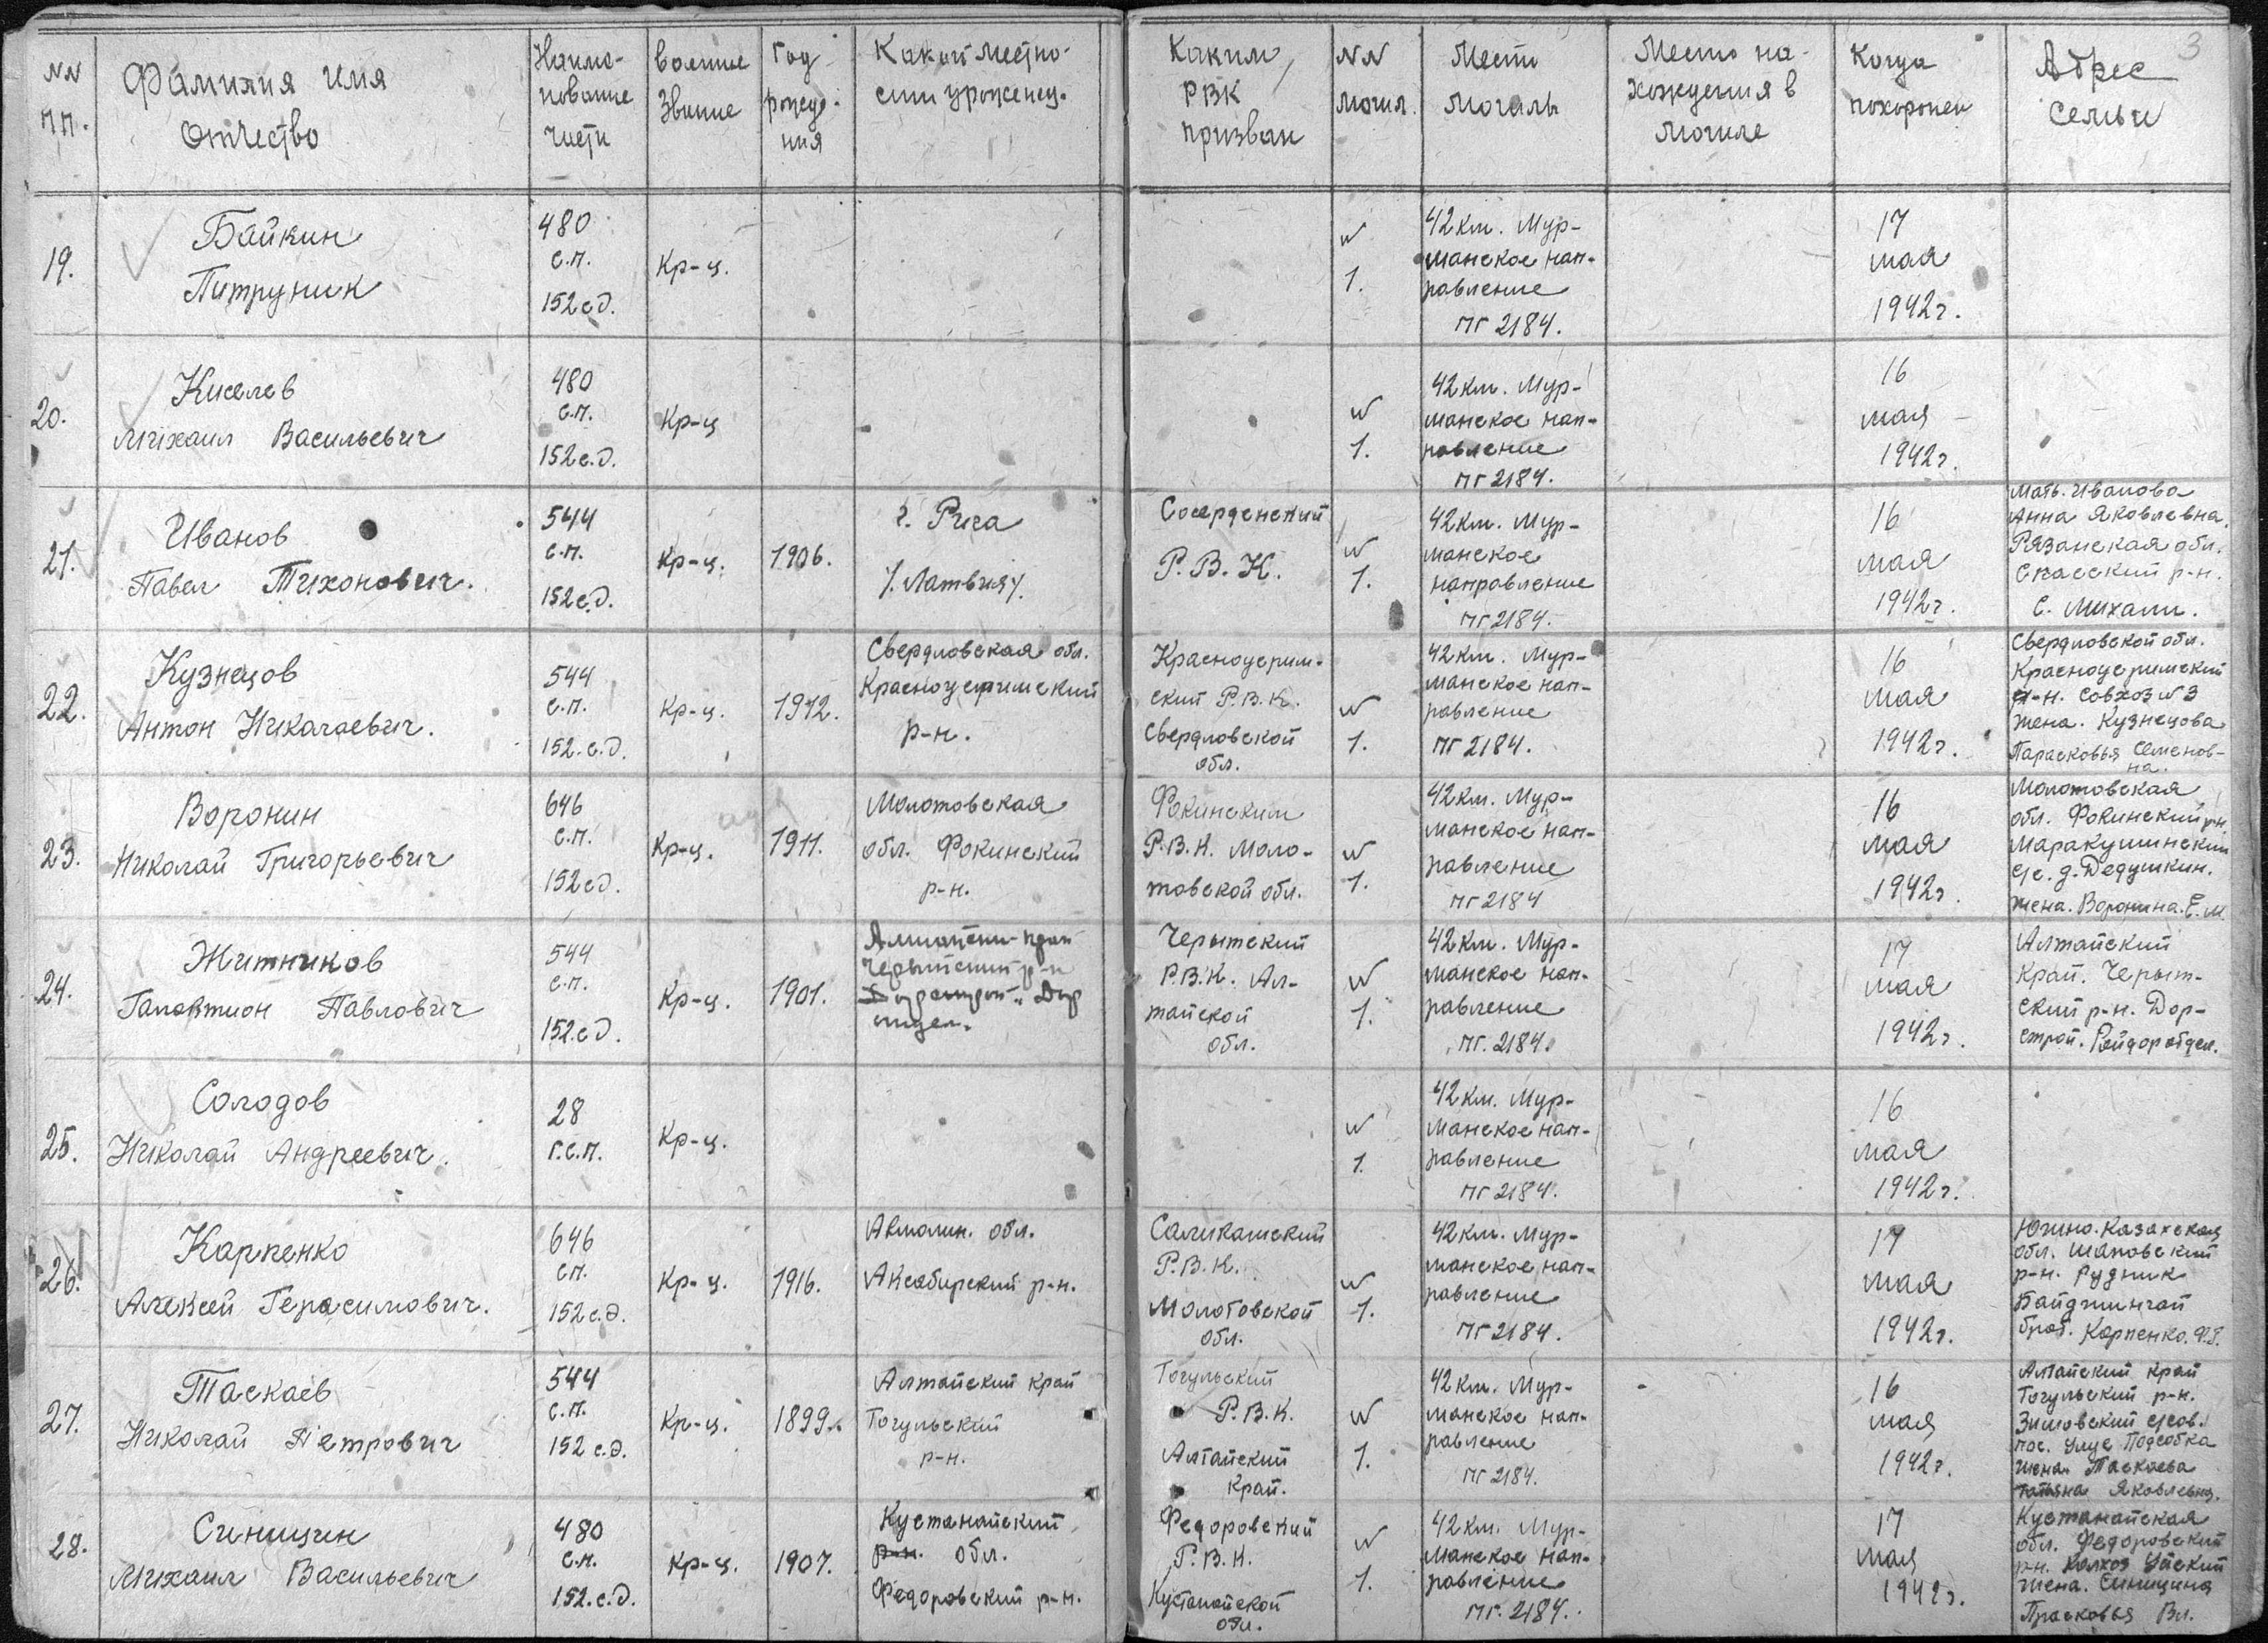 3
NN пп.
Фамилия имя отчество
Наиме-нование части
военное звание
Год рожде-ния
Какой местно-сти уроженец.
Каким РВК призван
NN могил.
Место могилы
Место на-хождения в могиле
Когда похоронен
Адрес семьи
19.
Байкин
Питруник
480
с.п.
152 с.д.
Кр-ц.
N
1.
42 км. Мур-
манское нап-
равление
пг 2184.
17
мая
1942 г.
20.
Киселев
Михаил Васильевич
480
с.п.
152 с.д.
Кр-ц
N
1.
42 км. Мур-
манское нап-
равление
пг 2184.
16
мая
1942 г.
21.
Иванов
Павел Тихонович.
544
с.п.
152 с.д.
Кр-ц.
1906.
г. Рига
/. Латвия/.
Р. В. К.
N
1.
42 км. Мур-
манское
направление
пг 2184.
16
мая
1942 г.
Мать. Иванова
Анна Яковлевна.
Рязанская обл.
Спасский р-н.
с. Михали.
22.
Кузнецов
Антон Николаевич.
544
с.п.
152. с.д.
Кр-ц.
1912.
Свердловская обл.
Красноуфимский
р-н.
Красноуфим-
ский Р.В.К.
Свердловской
обл.
N
1.
42 км. Мур-
манское нап-
равление
пг 2184.
16
мая
1942 г.
Свердловской обл.
Красноуфимский
р-н. Совхоз N 3
жена. Кузнецова
Парасковья Семенов-
на.
23.
Воронин
Николай Григорьевич
646
с.п.
152 с.д.
Кр-ц.
1911.
Молотовская
обл. Фокинский
р-н.
Фокинским
Р.В.К. Моло-
товской обл.
N
1.
42 км. Мур-
манское нап-
равление
пг 2184
16
мая
1942 г.
Молотовская
обл. Фокинский р-н
Маракушинский
с/с. д. Дедушкин.
жена. Воронина. Е. М.
24.
Житников
Галактион Павлович
544
с.п.
152 с.д.
Кр-ц.
1901.
Чертский
Р.В.К. Ал-
тайской
обл.
N
1.
42 км. Мур-
манское нап-
равление
пг. 2184.
17
мая
1942 г.
Алтайский
край. Черыт-
ский р-н. Дор-
строй. Райдоротдел.
25.
Солодов
Николай Андреевич.
28
г.с.п.
Кр-ц.
N
1.
42 км. Мур-
манское нап-
равление
пг 2184.
16
мая
1942 г.
26.
Карпенко
Алексей Герасимович.
646
сп.
152 с.д.
Кр-ц.
1916.
Акмолин. обл.
Р.В.К.
Молотовской
обл.
N
1.
42 км. Мур-
манское нап-
равление
пг 2184.
17
мая
1942 г.
Южно-Казахская
обл.
р-н. Рудник
Байджингай
брат. Карпенко.
27.
Таскаев
Николай Петрович
544
с.п.
152 с.д.
Кр-ц.
1899.
Алтайский край
Тогульский
р-н.
Тогульский
Р.В.К.
Алтайский
край.
N
1.
42 км. Мур-
манское нап-
равление
пг 2184.
16
мая
1942 г.
Алтайский край
Тогульский р-н.
Зимовский с/сов.
пос. Подсобка
жена Таскаева
Татьяна Яковлевна.
28.
Синицин
Михаил Васильевич
480
с.п.
152. с.д.
Кр-ц.
1907.
Кустанайский
р-н. обл.
Федоровский р-н.
Федоровский
Р.В.К.
Кустанайской
обл.
N
1.
42 км. Мур-
манское нап-
равление
пг. 2184.
17
мая
1942 г.
Кустанайская
обл. Федоровский
рн. Колхоз Уйский
жена. Синицина
Прасковья Вл.